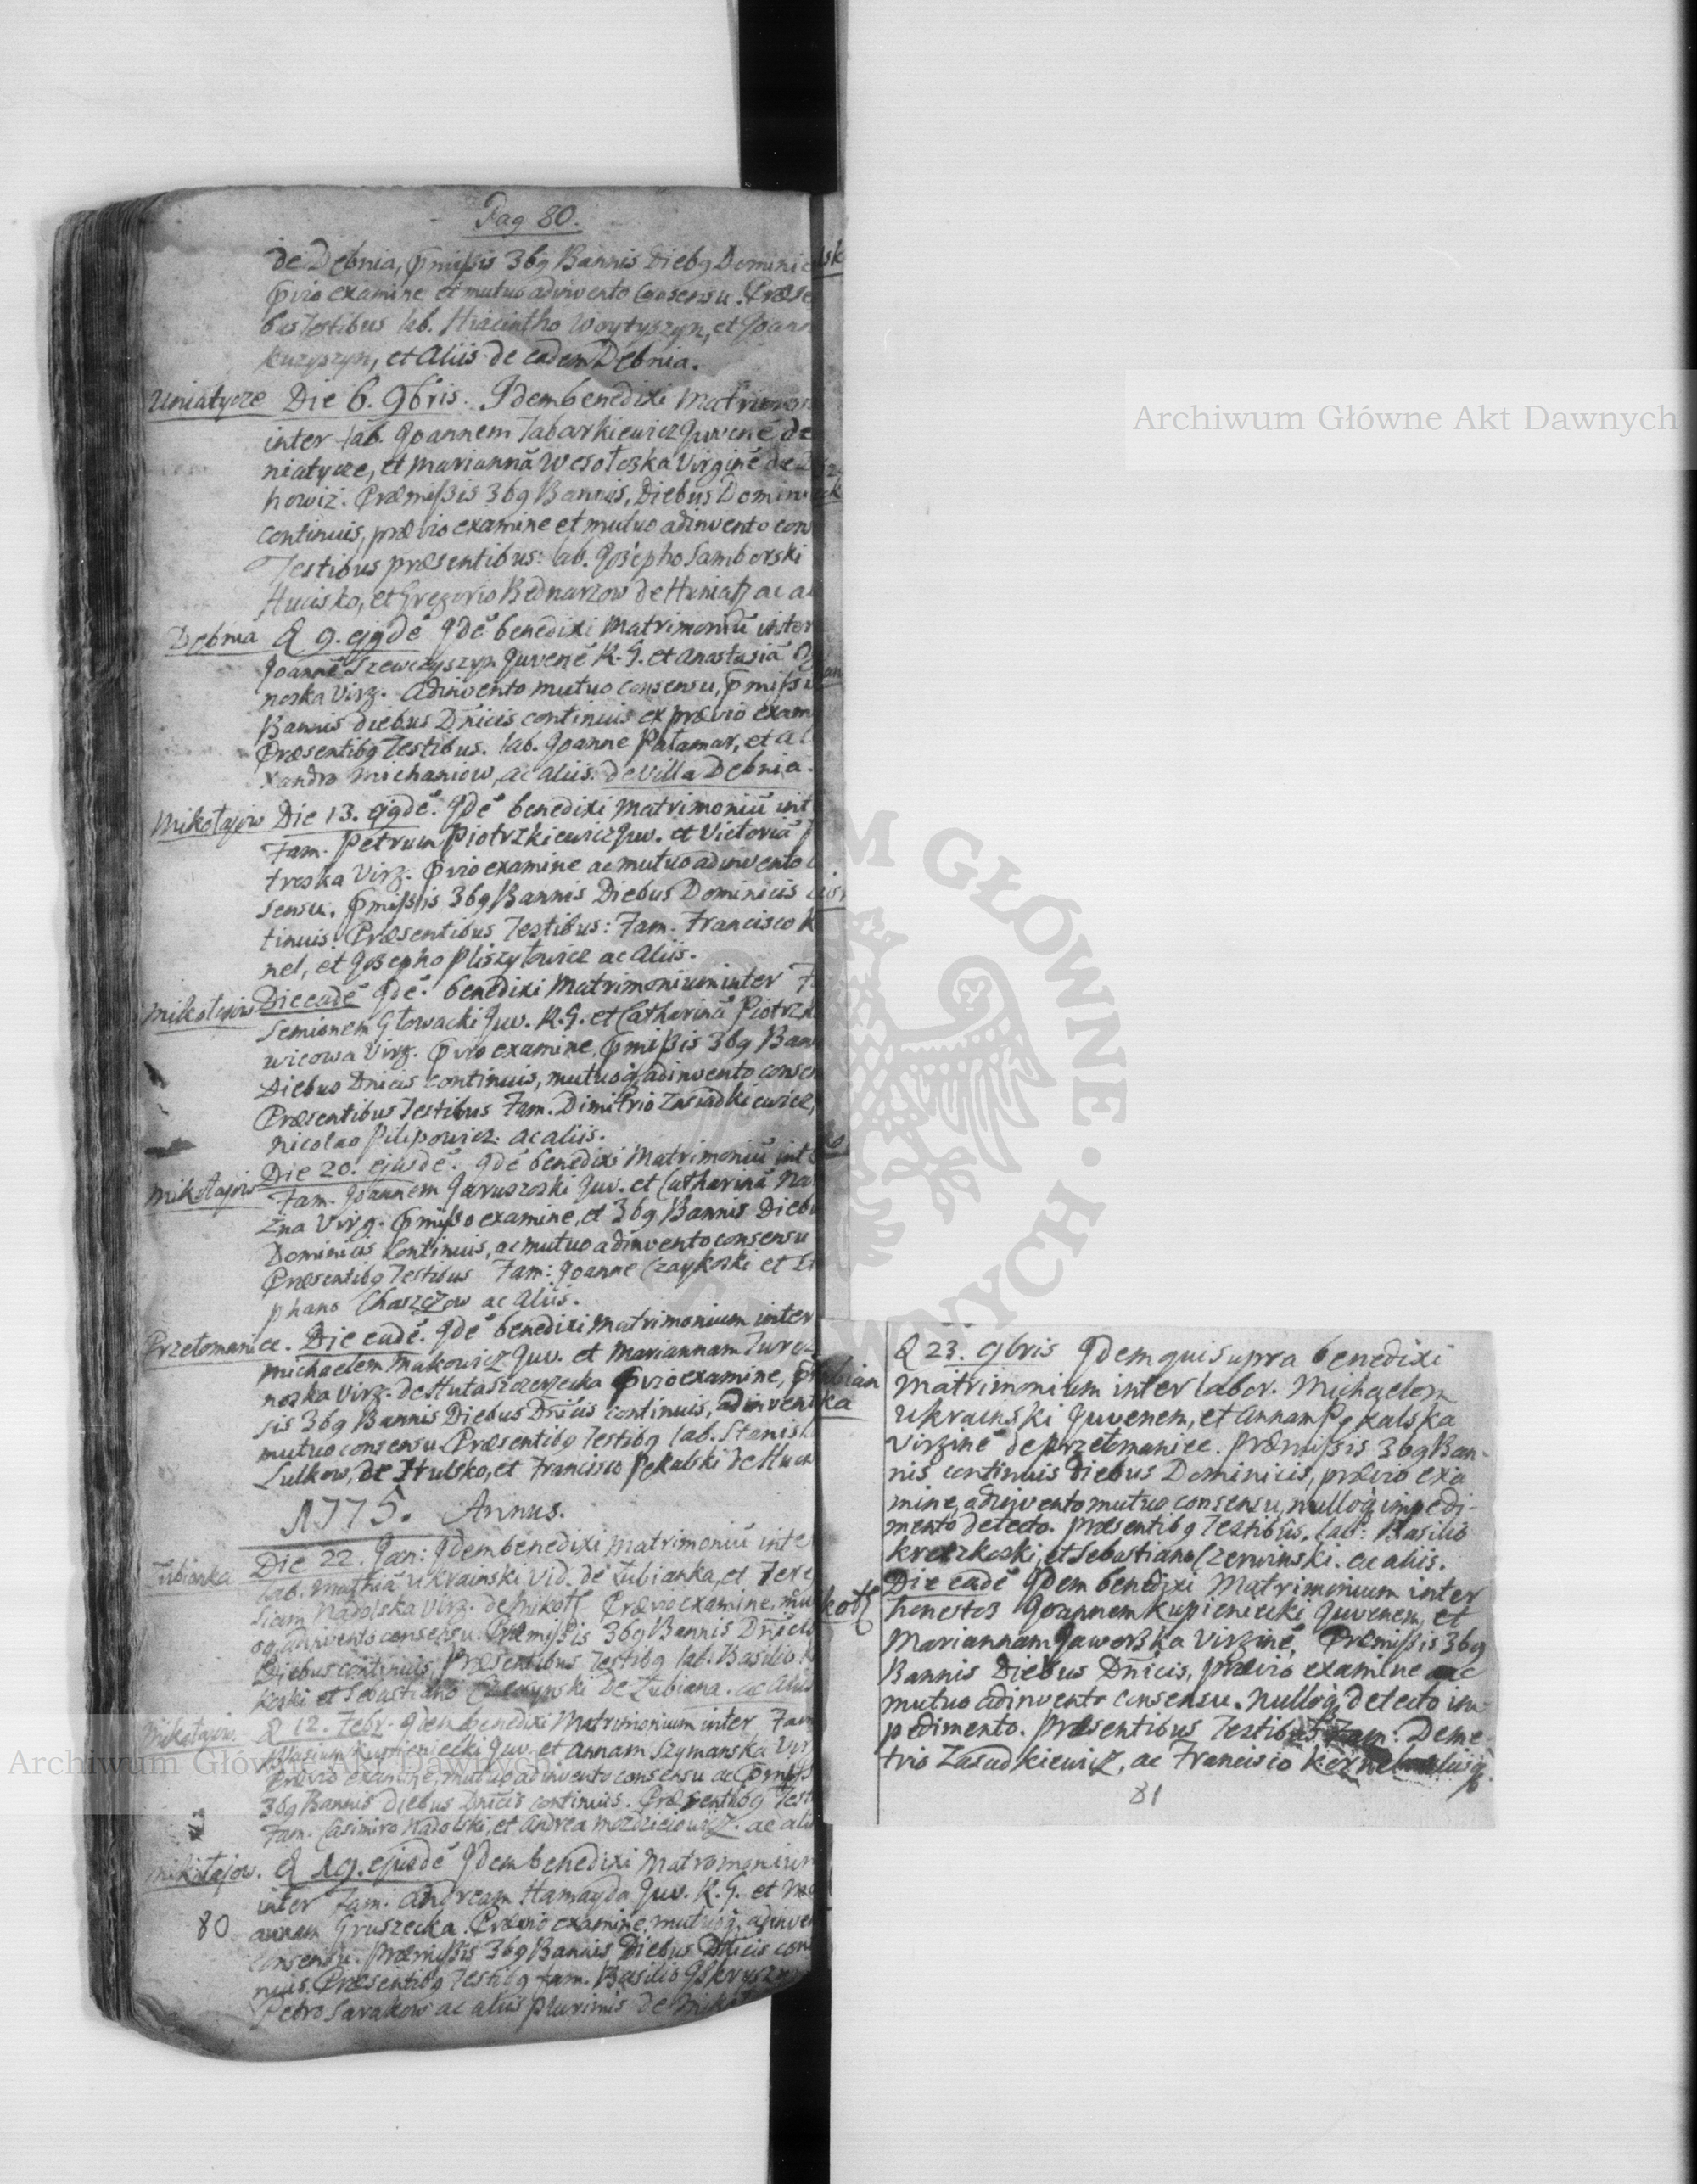 Pag 80.
de Dębnia, p̃mißis 3bq Bannis Diebq Dominic
p̃vio examine et mutuo adinvento Consensu. Præse
bus Testibus lab. Hiacintho Woytyszyn, et Joann
Kuzyszyn, et Aliis de eadem Dębnia.
Uniatycze Die 6. 9bris. Idem benedixi Matrimon
inter lab. Joannem Tabarkiewicz Juvenē de
niatycze, et Mariannā Wesołoska Virginē de
howiz. Præmißis 3bq Bannis, Diebus Domini
continuis, prævio examine et mutuo adinvento con
Testibus præsentibus: lab. Josepho Samborski
Hucisko, et Gregorio Bednarzow de Huniat ac al
Dębnia D 9. ejqdē Idē benedixi Matrimoniū inter
Joannē Szewczyszyn Juvenē R. G. et Anastasiā
noska Virg. Adinvento mutuo consensu, p̃mißi
Bannis diebus Dn̄icis continuis ex prævio exam
Præsentibq Testibus. lab. Joanne Pałamar, et Al
xandro Michaniow, ac aliis. de Villa Dębnia.
Mikołajow Die 13. ejqdē. Idē benedixi Matrimoniū int
Fam. Petrum Piotrzkiewicz Juv. et Victoriā
troska Virg. p̃vio examine ac mutuo adinvento
sensu. p̃mißis 3bq Bannis Diebus Dominicis
tinuis. Præsentibus Testibus: Fam. Francisco K
nel, et Josepho Pliszyłowicz ac Aliis.
Mikołajow Die eadē Idē. benedixi Matrimonium inter F
Semionem Głowacki Juv. R. G. et Catharinā Piotrzk
wicowa Virg. p̃vio examine, p̃mißis 3bq Ban
Diebus Dnicis continuis, mutuoq adinvento consen
Præsentibus Testibus Fam. Dimitrio Zasiadkiewicz,
Nicolao Pilipowicz. ac aliis.
Mikołajow Die 20. ejusdē. Idē benedixi Matrimoniū int
Fam. Joannem Jaruszoski Juv. et Catharinā Na
zna Virg. p̃mißo examine, et 3bq Bannis Dieb
Dominicis Continuis, ac mutuo adinvento consensu
Præsentibq Testibus Fam: Joanne Czaykoski et St
phano Chaszczow ac Aliis.
Przełomaniec. Die eadē. Idē benedixi Matrimonium inter
Michaelem Makowicz Juv. et Mariannam Turcz
noska Virg. de Huta Szczerzecka p̃vio examine,
sis 3bq Bannis Diebus Dn̄icis continuis, adinvent
mutuo consensu. Præsentibq Testibq lab. Stanisl
Lulkow, de Hulsko, et Francisco Pękalski de Huc
1775. Annus.
Łubianka Die 22. Jan: Idem benedixi Matrimoniū inte
lab. Mathiā Ukrainski Vid. de Łubianka, et Tere
siam Nadolska Virg. de Mikoł Prævio examine, mu
oq adinvento consensu. Præmißis 3bq Bannis Dn̄icis
Diebus continuis, Præsentibus Testibq lab. Basilio K
koski et Sebastiano de Łubiana. ac Aliis
Mikołajow D 12. Febr. Idem benedixi Matrimonium inter Fam
Blasium Kupieniecki Juv. et Annam Szymanska Vir
Prævio examine, mutuo adinvento consensu ac p̃mißi
3bq Bannis Diebus Dnicis continuis. Præsentibq Test
Fam. Casimiro Nadolski, et Andrea Mozdziciowicz. ac alii
Mikołajow. D 19. ejusdē Idem benedixi Matromonium
inter Fam: Andream Hamayda Juv. R. G. et Ma
annam Gruszecka. Prævio examine, mutuoq, adinven
consensu. Præmißis 3bq Bannis Diebus Dnicis con
nuis. Præsentibq Testibq fam. Basilio
Petro Sarakow ac aliis plurimis de Mikoł
80
Łubian
ka
D 23. 9bris Idem qui supra benedixi
Matrimonium inter labor. Michaelem
Ukrainski Juvenem, et Annam Pękalska
Virginē de Przełomaniec. Præmißis 3bq Ban-
nis continuis diebus Dominicis, prævio exa
mine, adinvento mutuo consensu, nulloq impedi-
mento detecto. Præsentibq Testibus. lab: Basilio
Kreczkoski, et Sebastiano Czerwinski. ac aliis.
kołł Die eadē Idem benedixi Matrimonium inter
honestos Joannem Kupieniecki Juvenem, et
Mariannam Jaworska Virginē, Præmißis 3bq
Bannis Diebus Dn̄icis, prævio examine ac
mutuo adinvento consensu. Nulloq detecto im-
pedimento. Præsentibus Testibus Fam: Deme
trio Zasadkiewicz, ac Francisco Kernel aliisq.
81
Archiwum Główne Akt Dawnych
Archiwum Główne Akt Dawnych